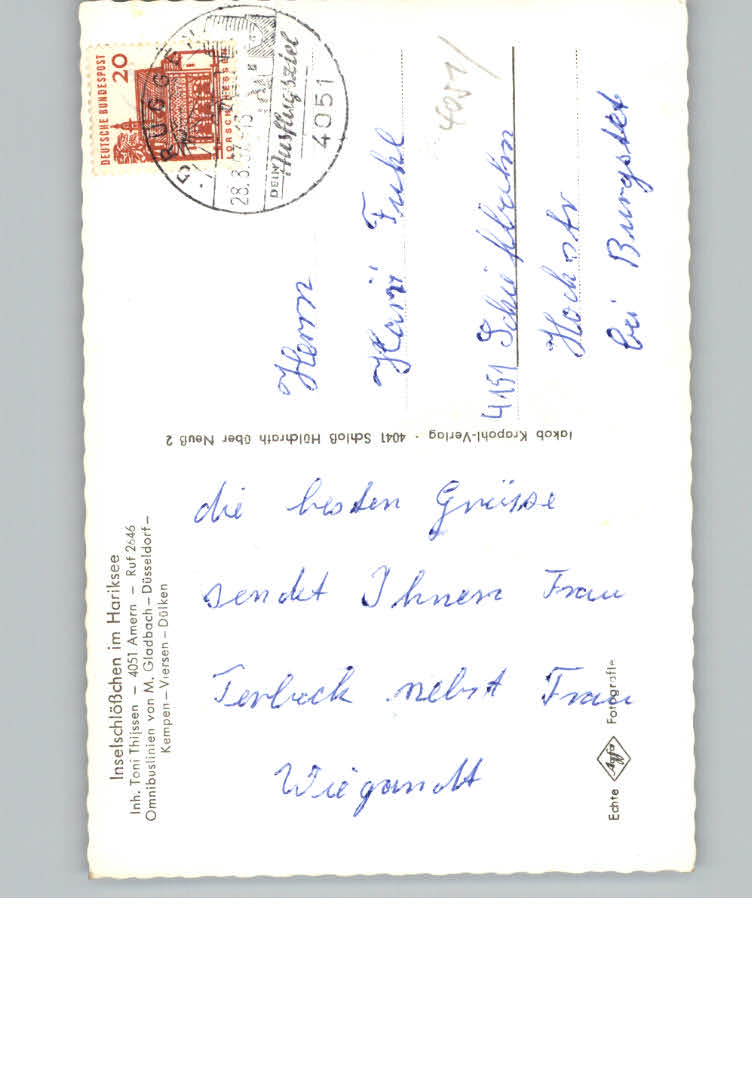 Inselschlößchen im Hariksee
Inh. Toni Thijssen – 4051 Amern – Ruf 2646
Omnibuslinien von M. Gladbach–Düsseldorf–
Kempen–Viersen–Dülken
die besten Grüsse
sendet Ihnen Frau
Terbeck nebst Frau
Wiegandt
Echte Agfa Fotografie
Jakob Krapohl-Verlag · 4041 Schloß Hülchrath über Neuß 2
DEUTSCHE BUNDESPOST
20
LORSCH/HESSEN
BRÜGGEN
28.3.67
DEIN Ausflugsziel
4051
4051/
Herrn
Fuhl
4151 Schiefbahn
Hochstr
bei